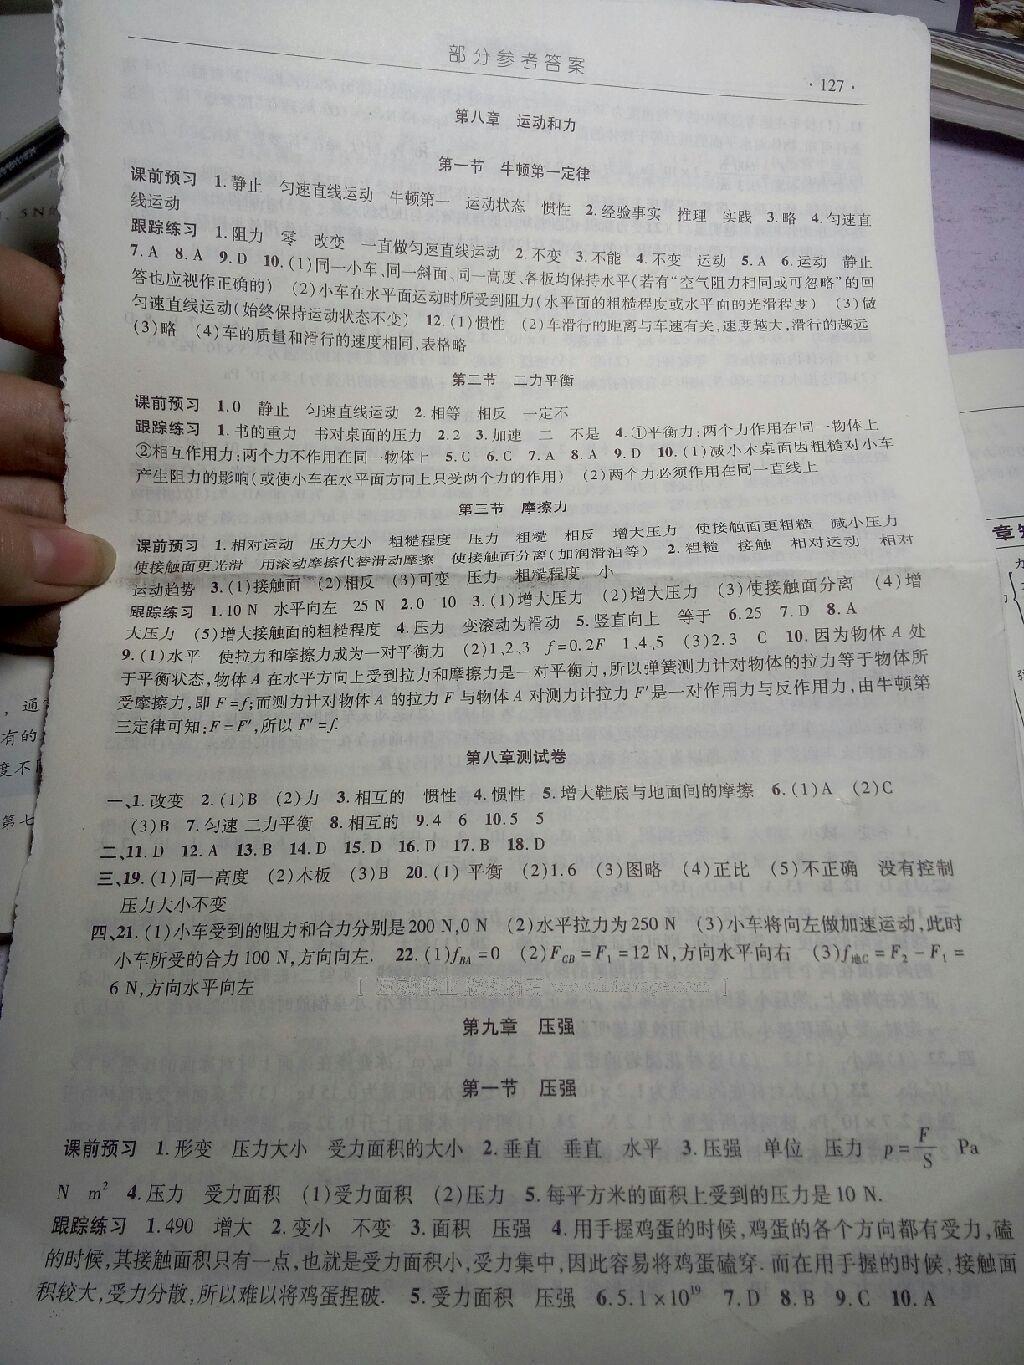 部分参考答案
·127·
第八章　运动和力
第一节　牛顿第一定律
课前预习　1.静止　匀速直线运动　牛顿第一　运动状态　惯性　2.经验事实　推理　实践　3.略　4.匀速直
线运动
跟踪练习　1.阻力　零　改变　一直做匀速直线运动　2.不变　3.不能　4.不变　运动　5.A　6.运动　静止
7.A　8.A　9.D　10.(1)同一小车、同一斜面、同一高度、各板均保持水平(若有“空气阻力相同或可忽略”的回
答也应视作正确的)　(2)小车在水平面运动时所受到阻力(水平面的粗糙程度或水平面的光滑程度)　(3)做
匀速直线运动(始终保持运动状态不变)　12.(1)惯性　(2)车滑行的距离与车速有关,速度越大,滑行的越远
(3)略　(4)车的质量和滑行的速度相同,表格略
第二节　二力平衡
课前预习　1.0　静止　匀速直线运动　2.相等　相反　一定不
跟踪练习　1.书的重力　书对桌面的压力　2.2　3.加速　二　不是　4.①平衡力:两个力作用在同一物体上
②相互作用力:两个力不作用在同一物体上　5.C　6.C　7.A　8.A　9.D　10.(1)减小木桌面因粗糙对小车
产生阻力的影响(或使小车在水平面方向上只受两个力的作用)　(2)两个力必须作用在同一直线上
第三节　摩擦力
课前预习　1.相对运动　压力大小　粗糙程度　压力　粗糙　相反　增大压力　使接触面更粗糙　减小压力
使接触面更光滑　用滚动摩擦代替滑动摩擦　使接触面分离(加润滑油等)　2.粗糙　接触　相对运动　相对
运动趋势　3.(1)接触面　(2)相反　(3)可变　压力　粗糙程度　小
跟踪练习　1.10 N　水平向左　25 N　2.0　10　3.(1)增大压力　(2)增大压力　(3)使接触面分离　(4)增
大压力　(5)增大接触面的粗糙程度　4.压力　变滚动为滑动　5.竖直向上　等于　6.25　7.D　8.A
9.(1)水平　使拉力和摩擦力成为一对平衡力　(2)1,2,3　f=0.2F　1,4,5　(3)2,3　C　10.因为物体 A 处
于平衡状态,物体 A 在水平方向上受到拉力和摩擦力是一对平衡力,所以弹簧测力计对物体的拉力等于物体所
受摩擦力,即 F=f;而测力计对物体 A 的拉力 F 与物体 A 对测力计拉力 F′是一对作用力与反作用力,由牛顿第
三定律可知:F=F′,所以 F′=f.
第八章测试卷
一、1.改变　2.(1)B　(2)力　3.相互的　惯性　4.惯性　5.增大鞋底与地面间的摩擦　6.(1)A　(2)C
(3)B　7.匀速 二力平衡　8.相互的　9.4　6　10.5　5
二、11.D　12.A　13.B　14.D　15.D　16.D　17.B　18.D
三、19.(1)同一高度　(2)木板　(3)B　20.(1)平衡　(2)1.6　(3)图略　(4)正比　(5)不正确　没有控制
压力大小不变
四、21.(1)小车受到的阻力和合力分别是200 N,0 N　(2)水平拉力为250 N　(3)小车将向左做加速运动,此时
小车所受的合力100 N,方向向左.　22.(1)f_BA=0　(2)F_CB=F₁=12 N,方向水平向右　(3)f_地C=F₂-F₁=
6 N,方向水平向左
第九章　压强
第一节　压强
课前预习　1.形变　压力大小　受力面积的大小　2.垂直　垂直　水平　3.压强　单位　压力　p=F/S　Pa
N　m²　4.压力　受力面积　(1)受力面积　(2)压力　5.每平方米的面积上受到的压力是10 N.
跟踪练习　1.490　增大　2.变小　不变　3.面积　压强　4.用手握鸡蛋的时候,鸡蛋的各个方向都有受力,磕
的时候,其接触面积只有一点,也就是受力面积小,受力集中,因此容易将鸡蛋磕穿.而在用手握的时候,接触面
积较大,受力分散,所以难以将鸡蛋捏破.　5.受力面积　压强　6.5.1×10¹⁹　7.D　8.B　9.C　10.A